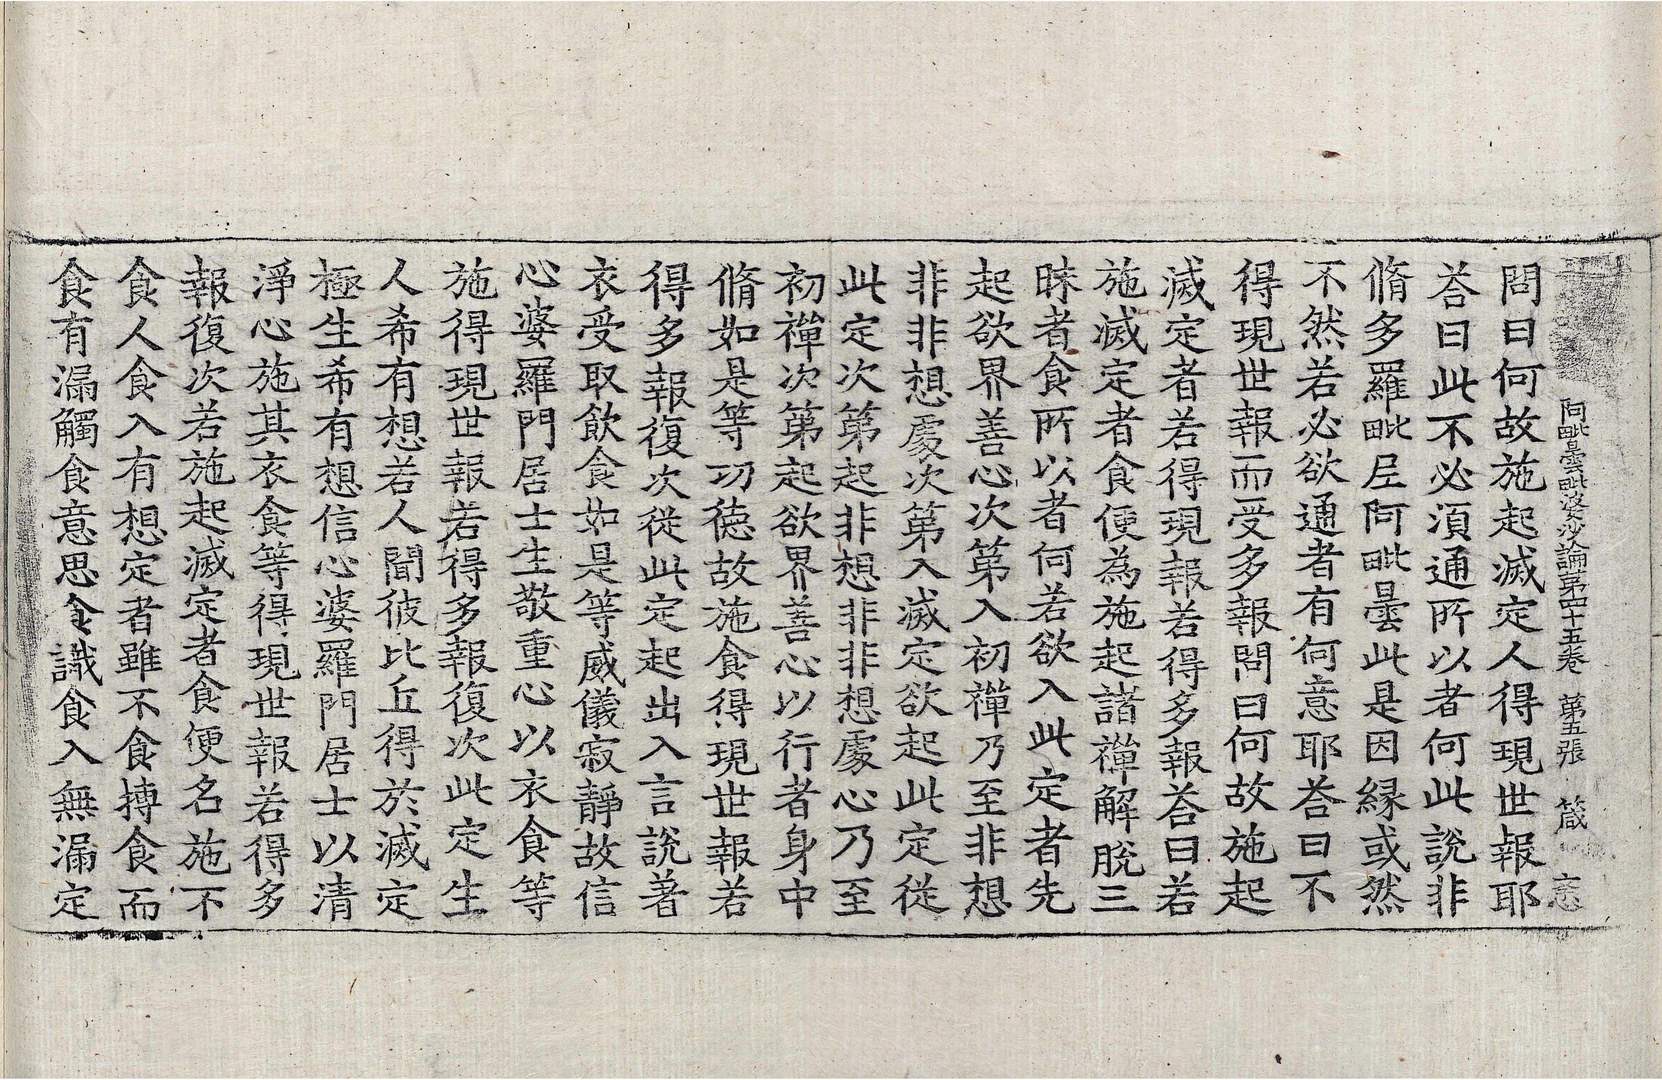 阿毗曇毗婆沙論第四十五卷 第五張 箴
問曰何故施起滅定人得現世報耶
荅曰此不必須通所以者何此說非
脩多羅毗尼阿毗曇此是因縁或然
不然若必欲通者有何意耶荅曰不
得現世報而受多報問曰何故施起
滅定者若得現報若得多報荅曰若
施滅定者食便為施起諸禪解脫三
昧者食所以者何若欲入此定者先
起欲界善心次第入初禪乃至非想
非非想處次第入滅定欲起此定從
此定次第起非想非非想處心乃至
初禪次第起欲界善心以行者身中
脩如是等功德故施食得現世報若
得多報復次從此定起出入言說著
衣受取飲食如是等威儀寂靜故信
心婆羅門居士生敬重心以衣食等
施得現世報若得多報復次此定生
人希有想若人聞彼比丘得於滅定
極生希有想信心婆羅門居士以清
淨心施其衣食等得現世報若得多
報復次若施起滅定者食便名施不
食人食入有想定者雖不食摶食而
食有漏觸食意思食識食入無漏定